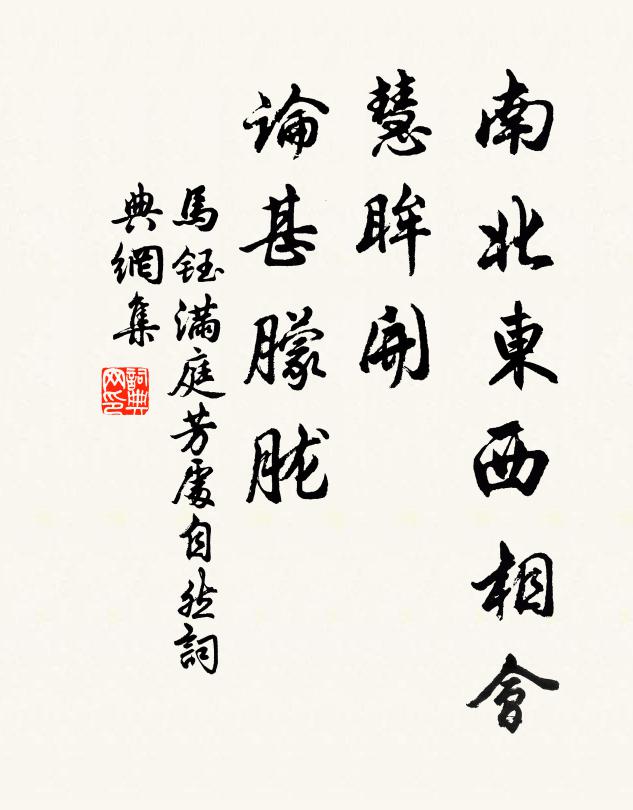 南北東西相會
慧眸開
論甚朦朧
馬鈺滿庭芳處自然詞
典網集
詞典網印